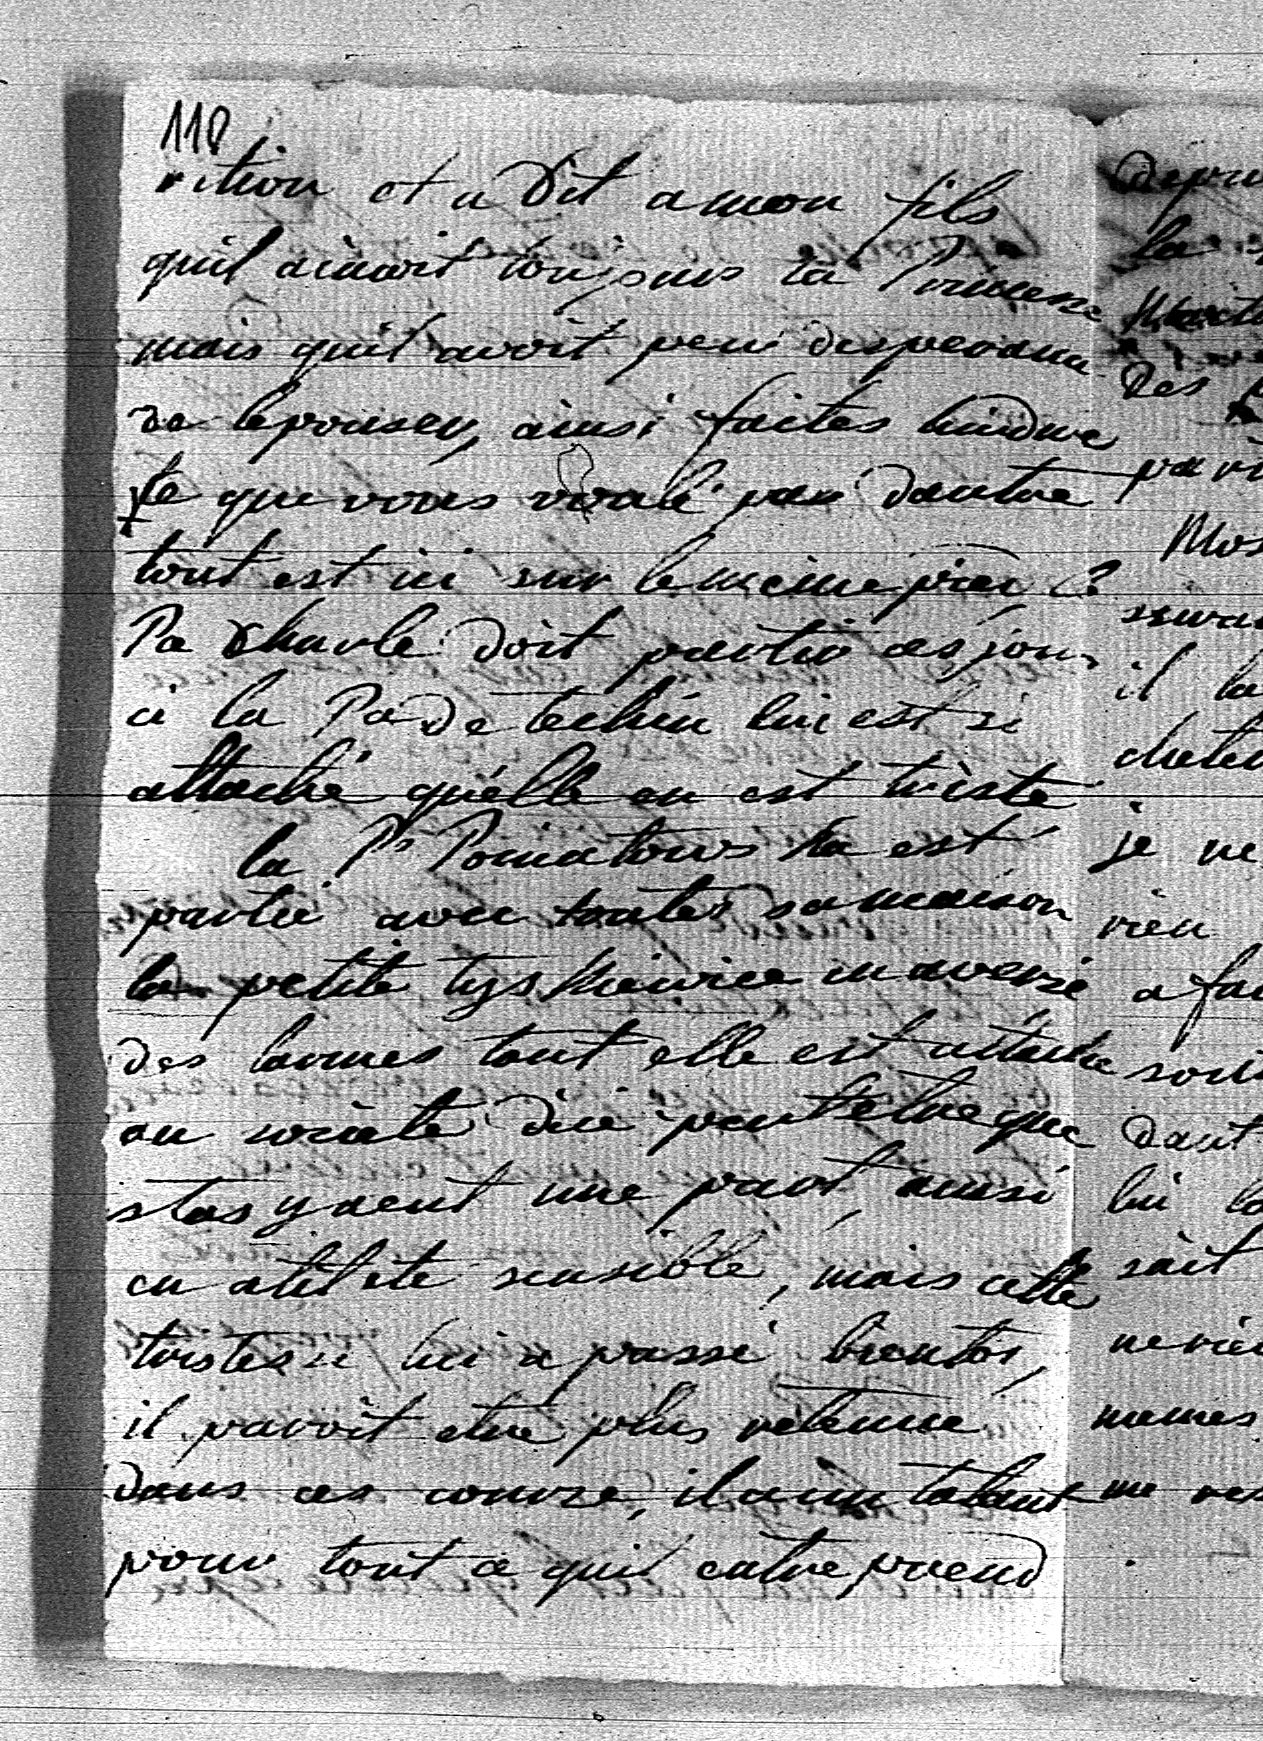 110
rition et a Dit a mon fils
quil aimoit toujours la Princesse
mais quil avoit peu desperance
de lepouser, ainsi faites
que vous par dautre
tout est ici sur le meme pied
Pce Charle doit partir ces jour
a la Pce De techin lui est si
attaché quelle en est triste
la Ps Poniatowska est
partie avec toutes sa maison
la petite tyskiewice a versé
des larmes tant elle est attaché
au societe dici peutetre que
stas y aeut une part aussi
en atil ete sensible, mais cette
tristesse lui a passé bientot,
il paroit etre plus retenue
dans ces , il a un talant
pour tout ce quil entreprend
Depui
la
Des
par
Mos
il la
je ne
rien
a fai
dant
lui la
sait
ne rien
memes
me res